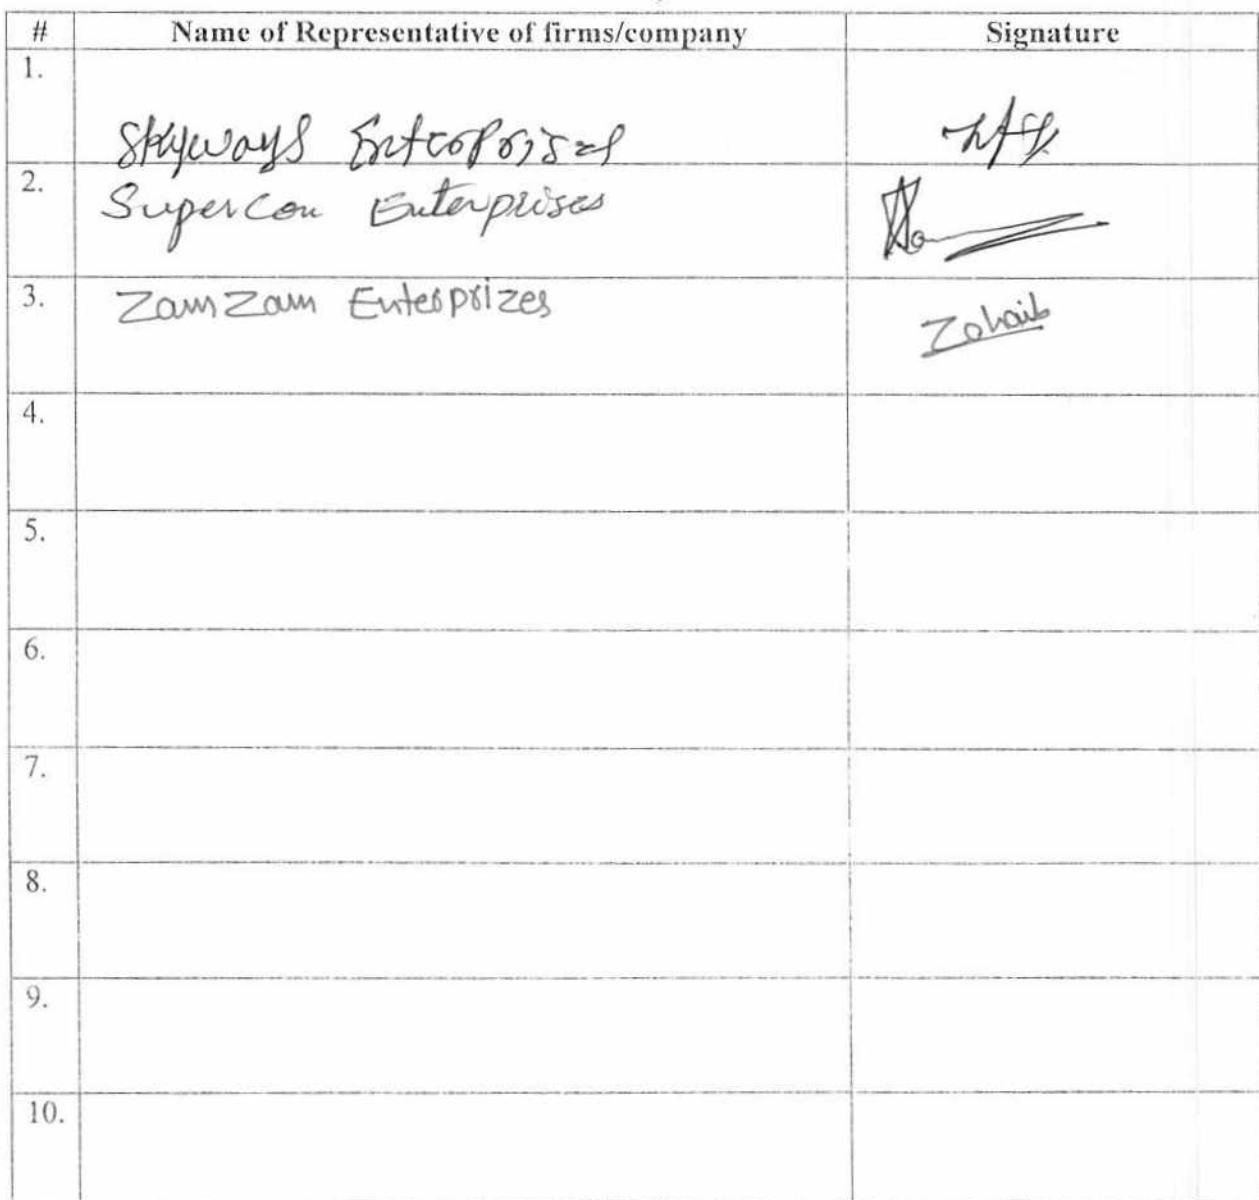 # Name of Representative of firms/company Signature
1.
Skyways Enterprises
2.
Supercon Enterprises
3.
ZamZam Enterprizes
Zohaib
4.
5.
6.
7.
8.
9.
10.